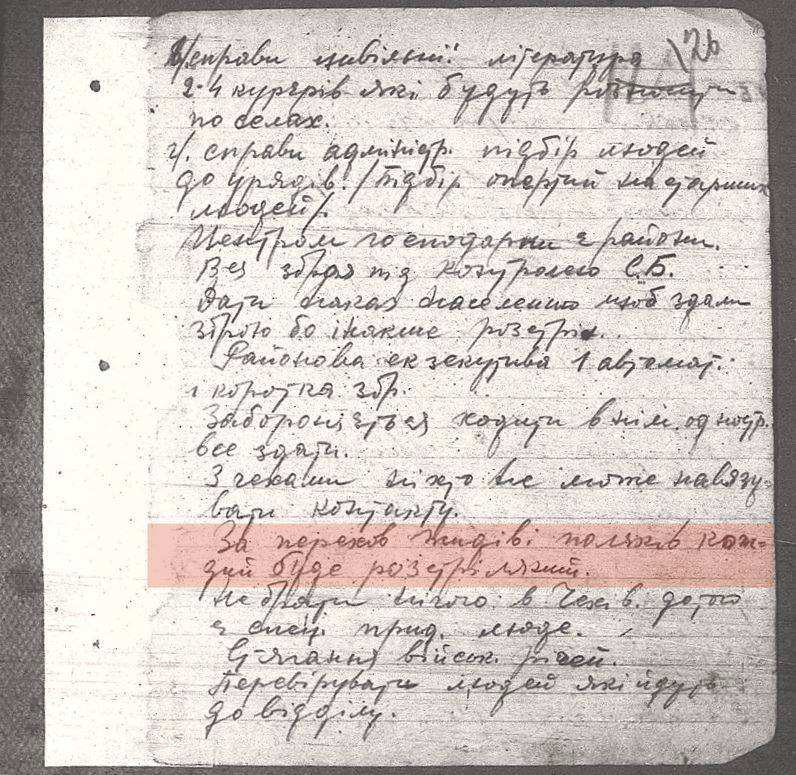 в/ справи цивільнії література 126
2-4 курєрів які будуть розносити
по селах.
г/. справи адміністр. підбір людей
до урядів. /підбір опертий на старших
людей/.
Центром господарки є райони.
Вся зброя під контролею С.Б.
Дати наказ населенню щоб здали
зброю бо інакше розстріл.
Районова екзекутива 1 автомат.
1 коротка збр.
Забороняється ходити в нім. одностр.
все здати.
З чехами ніхто не може навязу-
вати контакту.
За перехов жидів і поляків кож-
зий буде розстріляний.
Не брати нічого в Чехів. до того
є спец. прид. люде.
Стягання військ. річей.
Перевірувати людей які йдуть
до відділу.